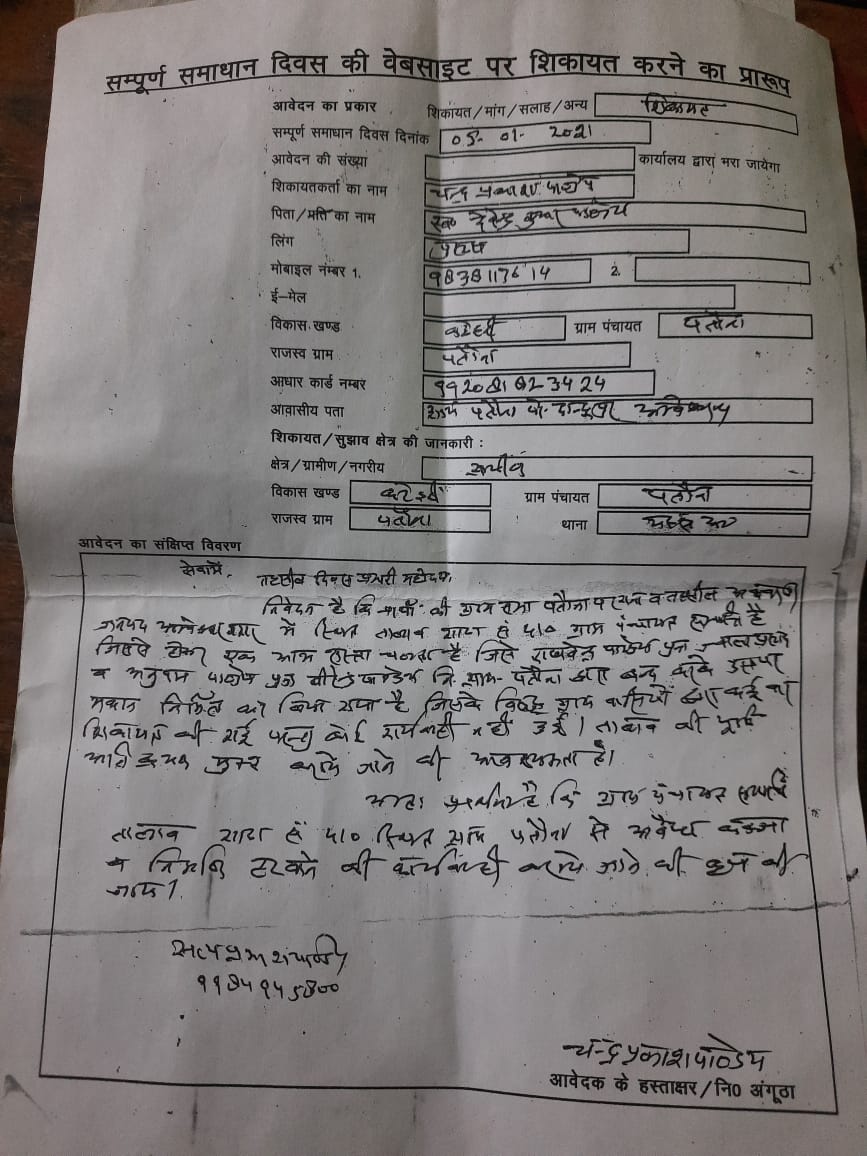 सम्पूर्ण समाधान दिवस की वेबसाइट पर शिकायत करने का प्रारूप
आवेदन का प्रकार शिकायत/मांग/सलाह/अन्य शिकायत
सम्पूर्ण समाधान दिवस दिनांक 05-01-2021
आवेदन की संख्या कार्यालय द्वारा भरा जायेगा
शिकायतकर्ता का नाम चन्द्र प्रकाश पाण्डेय
पिता/पति का नाम कुमार पाण्डेय
लिंग पुरुष
मोबाइल नंम्बर 1. 9838117614 2.
ई-मेल
विकास खण्ड कटेहरी ग्राम पंचायत पतौना
राजस्व ग्राम पतौना
आधार कार्ड नम्बर
आवासीय पता ग्राम पतौना पो.
शिकायत/सुझाव क्षेत्र की जानकारी :
क्षेत्र/ग्रामीण/नगरीय ग्रामीण
विकास खण्ड कटेहरी ग्राम पंचायत पतौना
राजस्व ग्राम पतौना थाना
आवेदन का संक्षिप्त विवरण
सेवामें,
तहसील दिवस प्रभारी महोदय,
निवेदन है कि प्रार्थी की ग्राम सभा पतौना व तहसील
जनपद अम्बेडकर नगर में स्थित तालाब गाटा सं० ग्राम पंचायत सम्पत्ति है
जिससे होकर एक आम रास्ता चलता है जिसे राघवेन्द्र पाण्डेय पुत्र
व अनुपम पाण्डेय पुत्र पाण्डेय नि. ग्राम- पतौना द्वारा बन्द करके उसपर
मकान निर्मित कर लिया गया है जिसके विरुद्ध ग्राम वासियों द्वारा कई बार
शिकायत की गई परन्तु कोई कार्यवाही नहीं हुई। तालाब की भूमि
मुक्त कराये जाने की आवश्यकता है।
अतः प्रार्थना है कि ग्राम पंचायत सम्पत्ति
तालाब गाटा सं० स्थित ग्राम पतौना से अवैध कब्जा
व निर्माण हटवाने की कार्यवाही कराये जाने की कृपा की
जाय।
चन्द्र प्रकाश पाण्डेय
आवेदक के हस्ताक्षर/नि0 अंगूठा